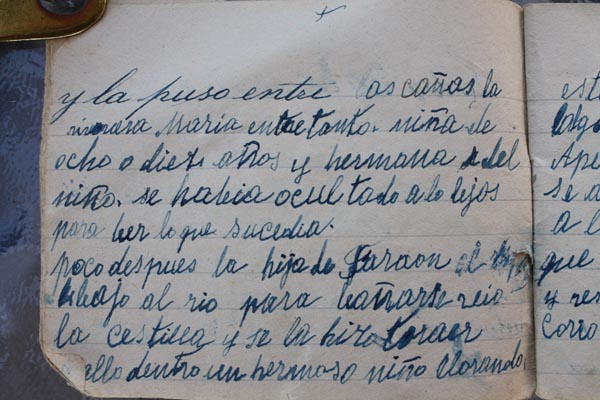 y la puso entre las cañas, la
Maria entretanto. niña de
ocho o diez años y hermana del
niño. se habia ocultado a lo lejos
para ber lo que sucedia.
poco despues la hija de Faraon
bajo al rio para bañarse
la cestilla y se la hizo traer
dentro un hermoso niño llorando.
esta
Ape
se a
a l
que
y re
Corro